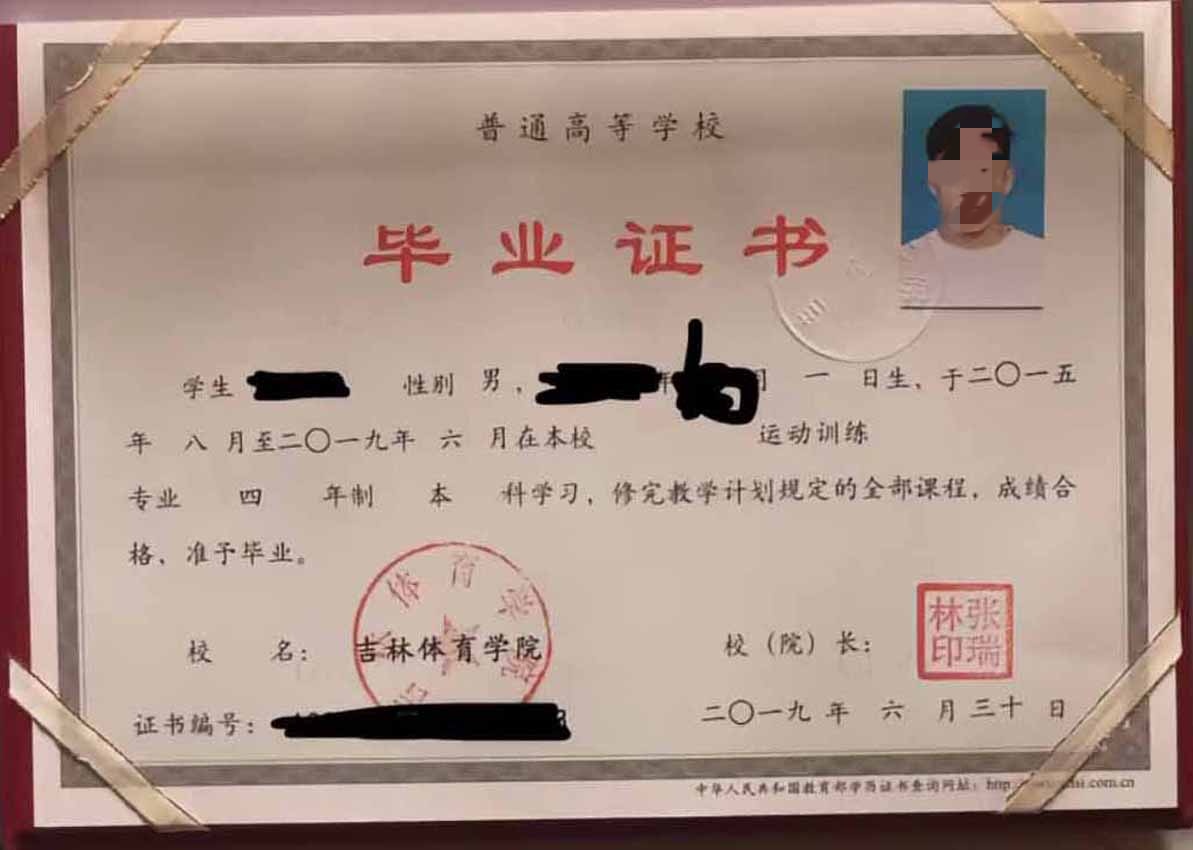 普通高等学校
毕业证书
学生 性别 男， 年 月 一 日生、于二〇一五
年 八 月至二〇一九年 六 月在本校 运动训练
专业 四 年制 本 科学习，修完教学计划规定的全部课程，成绩合
格、准予毕业。
校 名： 吉林体育学院
校（院）长：
张瑞林印
证书编号：
二〇一九 年 六 月三十 日
中华人民共和国教育部学历证书查询网址：http